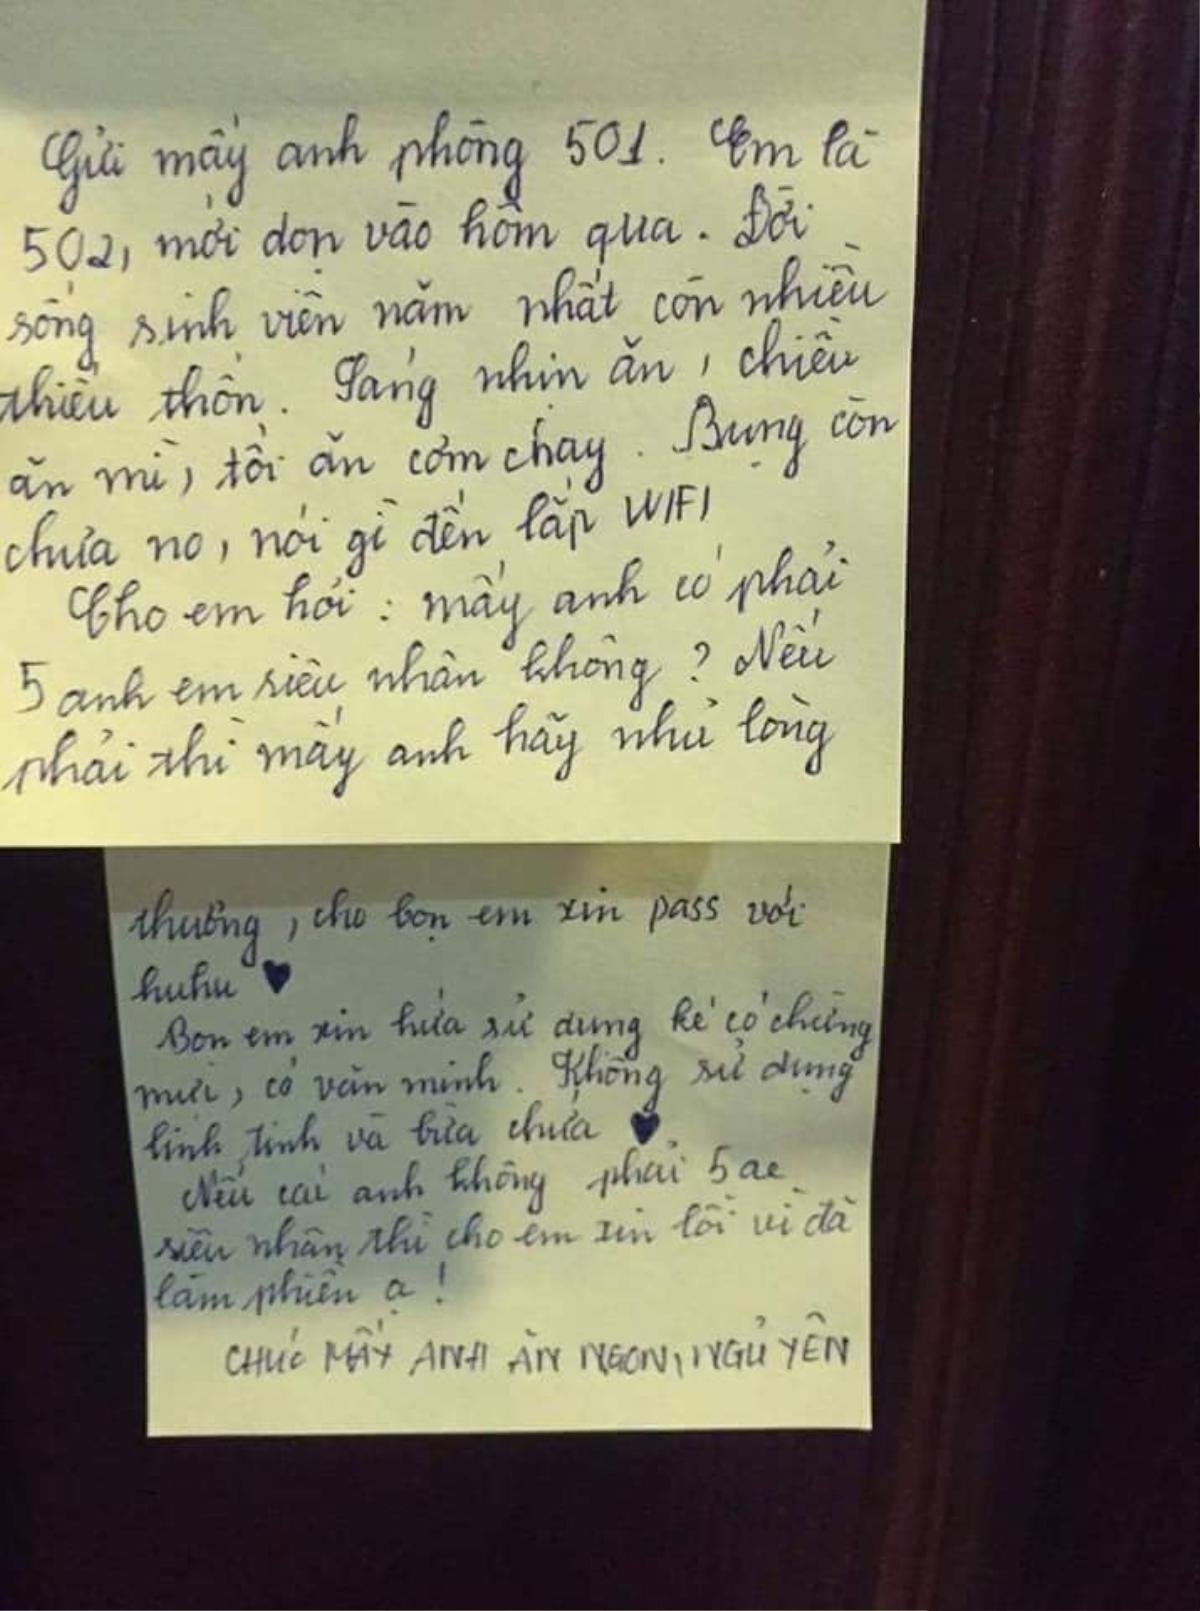 Gửi mấy anh phòng 501. Em là
502, mới dọn vào hôm qua. Đời
sống sinh viên năm nhất còn nhiều
thiếu thốn. Sáng nhịn ăn, chiều
ăn mì, tối ăn cơm chay. Bụng còn
chưa no, nói gì đến lắp WIFI
Cho em hỏi: mấy anh có phải
5 anh em siêu nhân không? Nếu
phải thì mấy anh hãy nhủ lòng
thương, cho bọn em xin pass với
huhu ♥
Bọn em xin hứa sử dụng kẻ có chừng
mực, có văn minh. Không sử dụng
linh tinh và bừa chứa ♥
Nếu cái anh không phải 5 ae
siêu nhân thì cho em xin lỗi vì đã
làm phiền ạ!
CHÚC MẤY ANH ĂN NGON, NGỦ YÊN